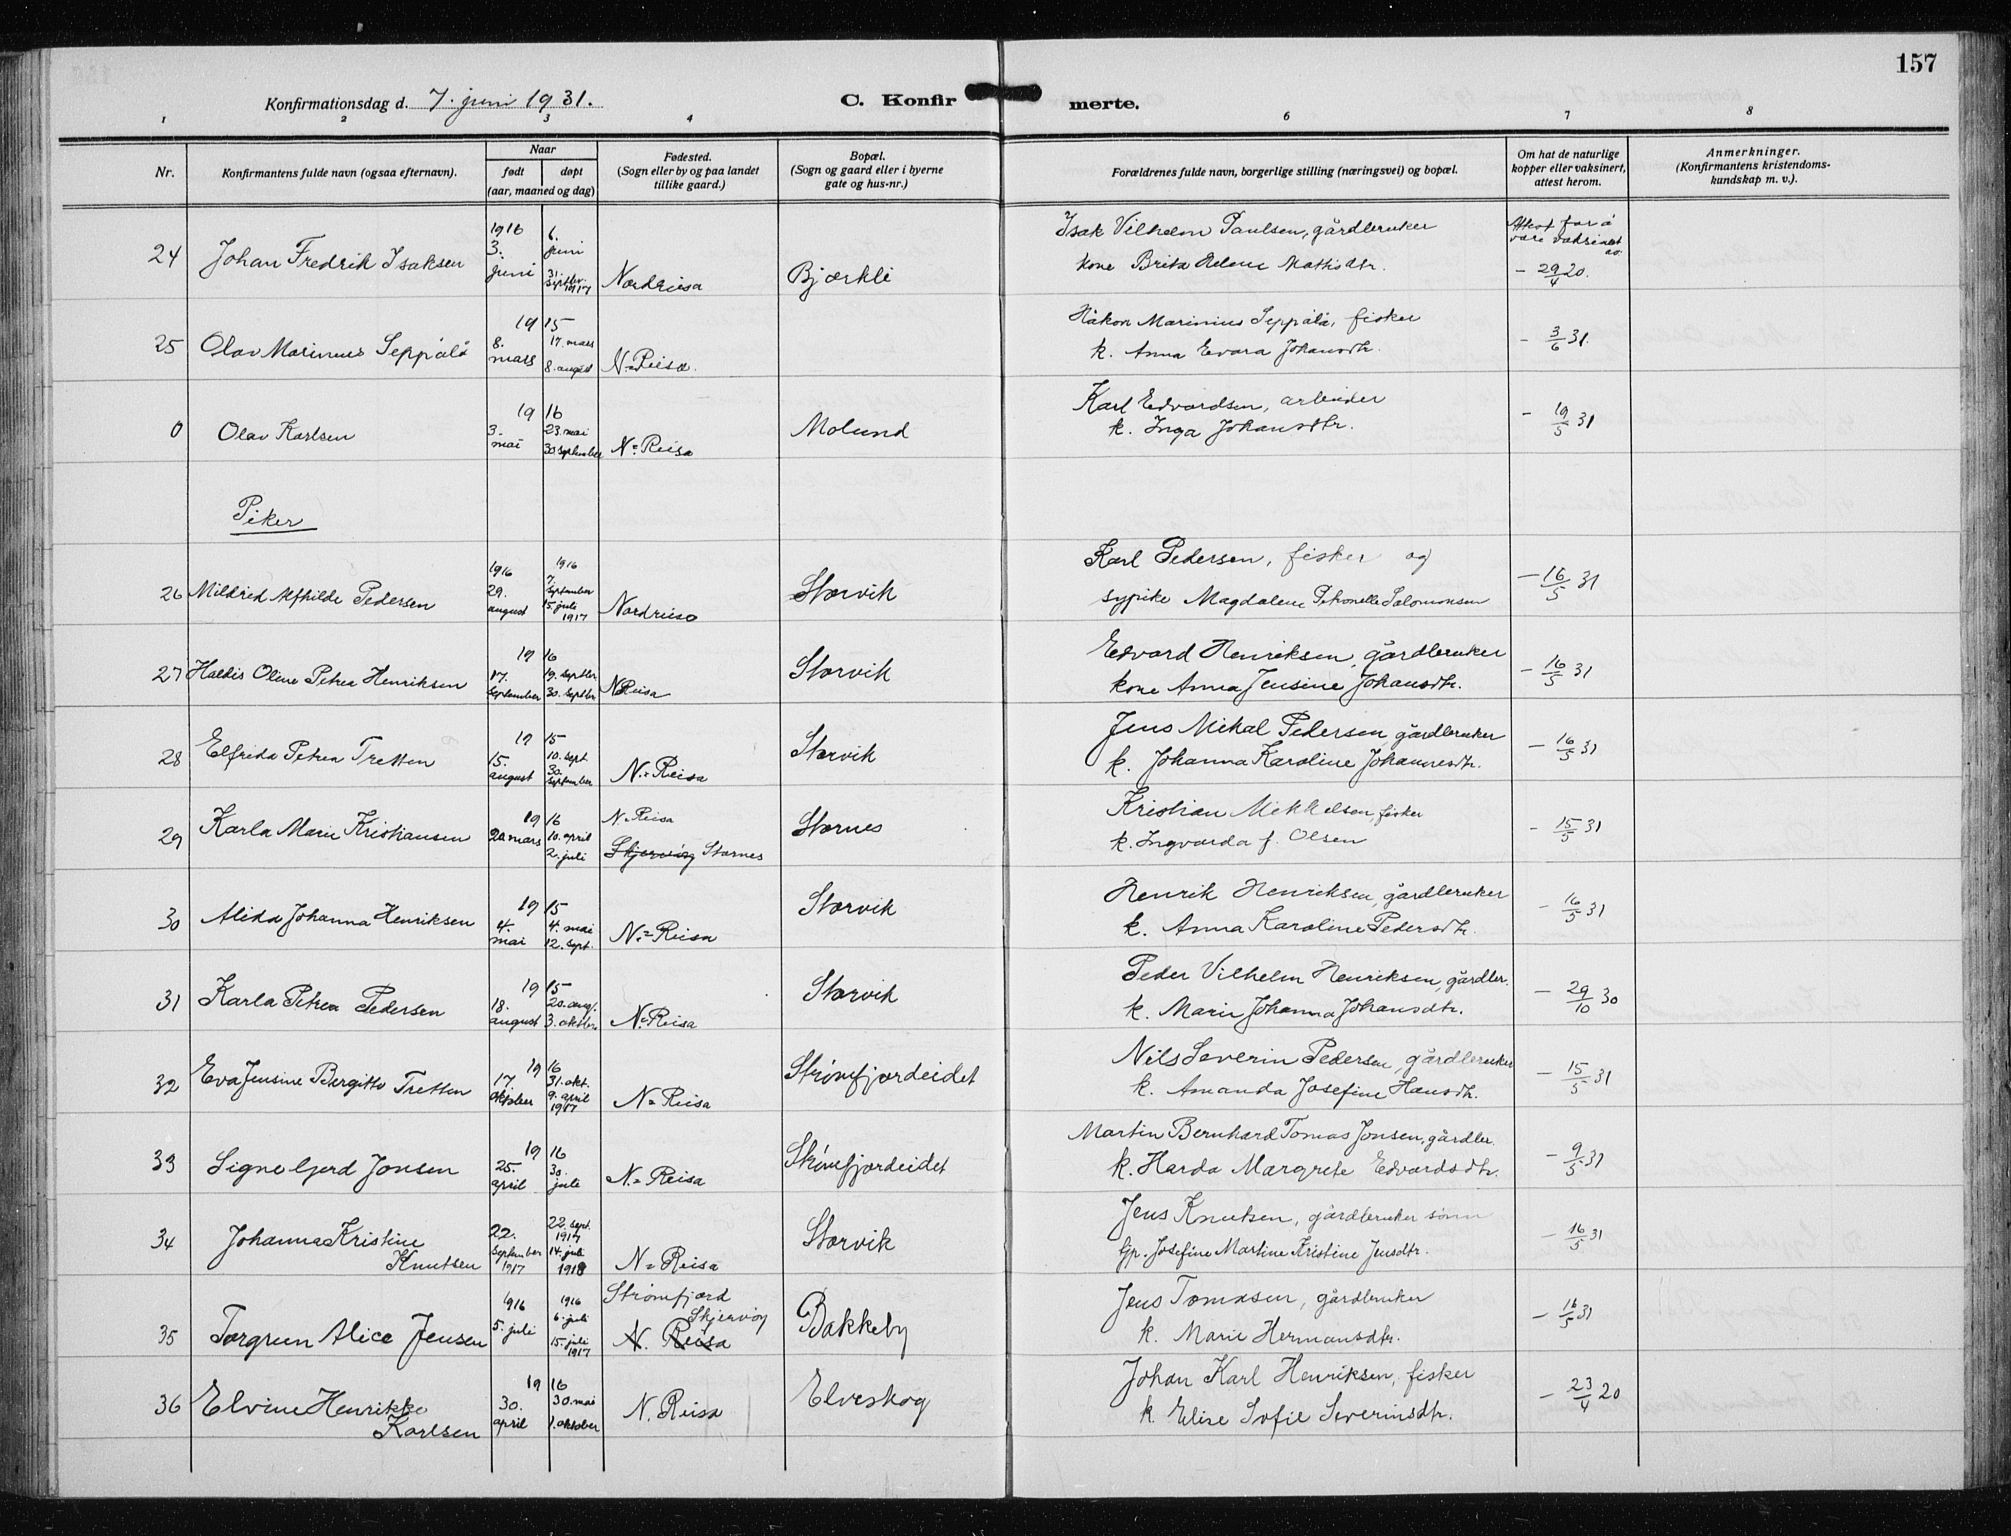 157
Konfirmationsdag d. 7. juni 1931.
C. Konfirmerte.
1 2 3 4 6 7 8
Nr.
Konfirmantens fulde navn (ogsaa efternavn).
Naar
født
døpt
(aar, maaned og dag)
Fødested.
(Sogn eller by og paa landet
tillike gaard.)
Bopæl.
(Sogn og gaard eller i byerne
gate og hus-nr.)
Forældrenes fulde navn, borgerlige stilling (næringsvei) og bopæl.
Om hat de naturlige
kopper eller vaksinert,
attest herom.
Anmerkninger.
(Konfirmantens kristendoms-
kundskap m. v.).
24 Johan Fredrik Isaksen
1916 3. juni
6. juni 31. septbr. 1917
Nordreisa
Bjørkli
Isak Vilhelm Paulsen, gårdbruker
kone Brita Helene Mathisdtr.
Attest for å
være
- 29/4 20.
25 Olav Marinius Seppälä
1915 8. mars
17. mars 8. august
N=Reisa.
Håkon Marinius Seppälä, fisker
k. Anna Evara Johansdtr.
- 3/6 31.
0 Olav Karlsen
1916 3. mai
23. mai 30 september
N=Reisa
Molund
Karl Edvardsen, arbeider
k. Inga Johansdtr.
- 19/5 31
Piker
26 Mildrid Alfhilde Pedersen
1916 29. august
1916 7. september 15. juli 1917
Nordreisa
Storvik
Karl Pedersen, fisker og
sypike Magdalene Petronelle Salomonsen
- 16/5 31
27 Haldis Oline Petrea Henriksen
1916 17. september
19. septbr 30. septbr
N Reisa
Storvik
Edvard Henriksen, gårdbruker
kone Anna Jensine Johansdtr.
- 16/5 31
28 Elfrida Petrea Tretten
1915 15. august
10. sept. 30. september
N.=Reisa
Storvik
Jens Mikal Pedersen gårdbruker
k. Johanna Karoline Johannesdtr.
- 16/5 31
29 Karla Marie Kristiansen
1916 20 mars
10. april 2. juli
N=Reisa
Skjervøy Stornes
Stornes
Kristian Mikkelsen, fisker
k. Ingvarda f. Olsen
- 15/5 31
30 Alida Johanna Henriksen
1915 4. mai
4. mai 12. sept.
N.=Reisa
Storvik
Henrik Henriksen, gårdbruker
k. Anna Karoline Pedersdtr.
- 16/5 31
31 Karla Petrea Pedersen
1915 18. august
20. aug. 3. oktbr.
N.=Reisa
Storvik
Peder Vilhelm Henriksen, gårdbr.
k. Marie Johanna Johansdtr.
- 29/10 30
32 Eva Jensine Bergitte Tretten
1916 17. oktober
31. okt. 9. april 1917
N=Reisa
Strømfjordeidet
Nils Severin Pedersen, gårdbruker
k. Amanda Josefine Hansdtr.
- 15/5 31
33 Signe Gjerd Jonsen
1916 25. april
30. juli
N.=Reisa
Strømfjordeidet
Martin Bernhard Tomas Jonsen, gårdbr.
k. Harda Margrete Edvardsdtr.
- 9/5 31
34 Johanna Kristine
Knutsen
22. september 1917
22. sept. 1917 14. juli 1918
N=Reisa
Storvik
Jens Knutsen, gårdbruker sønn
Gp. Josefine Martine Kristine Jensdtr.
- 16/5 31
35 Torgrun Alice Jensen
1916 5. juli
1916 6. juli 15. juli 1917
Strømfjord
Skjervøy
N. Reisa
Bakkeby
Jens Tomasen, gårdbruker
k. Marie Hermansdtr.
- 16/5 31
36 Elvine Henrikke
Karlsen
1916 30. april
30. mai 1. oktober
N. Reisa
Elveskog
Johan Karl Henriksen, fisker
k. Elise Sofie Severinsdtr.
- 23/4 20